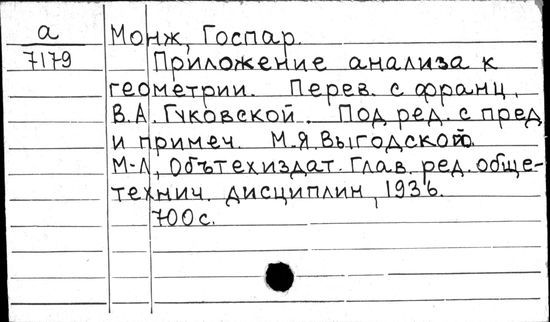 а
7179
Монж, Госпар.
Приложение анализа к
геометрии. Перев. с франц.
В.А. Гуковской. Под ред. с пред.
и примеч. М.Я. Выгодского.
М-Л, Обътехиздат. Глав. ред. обще-
технич. дисциплин, 1936.
700 с.